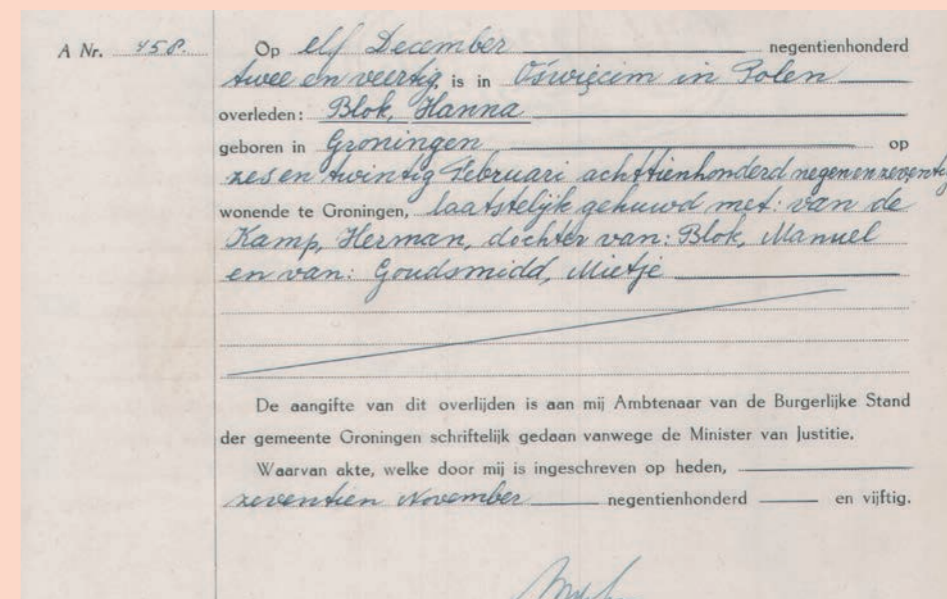 A Nr. 458. Op elf December negentienhonderd
twee en veertig, is in Oświęcim in Polen
overleden: Blok, Hanna
geboren in Groningen op
zes en twintig Februari achttienhonderd negen en zeventig
wonende te Groningen, laatstelijk gehuwd met: van de
Kamp, Herman, dochter van: Blok, Manuel
en van: Goudsmidd, Mietje
De aangifte van dit overlijden is aan mij Ambtenaar van de Burgerlijke Stand
der gemeente Groningen schriftelijk gedaan vanwege de Minister van Justitie.
Waarvan akte, welke door mij is ingeschreven op heden,
zeventien November negentienhonderd en vijftig.